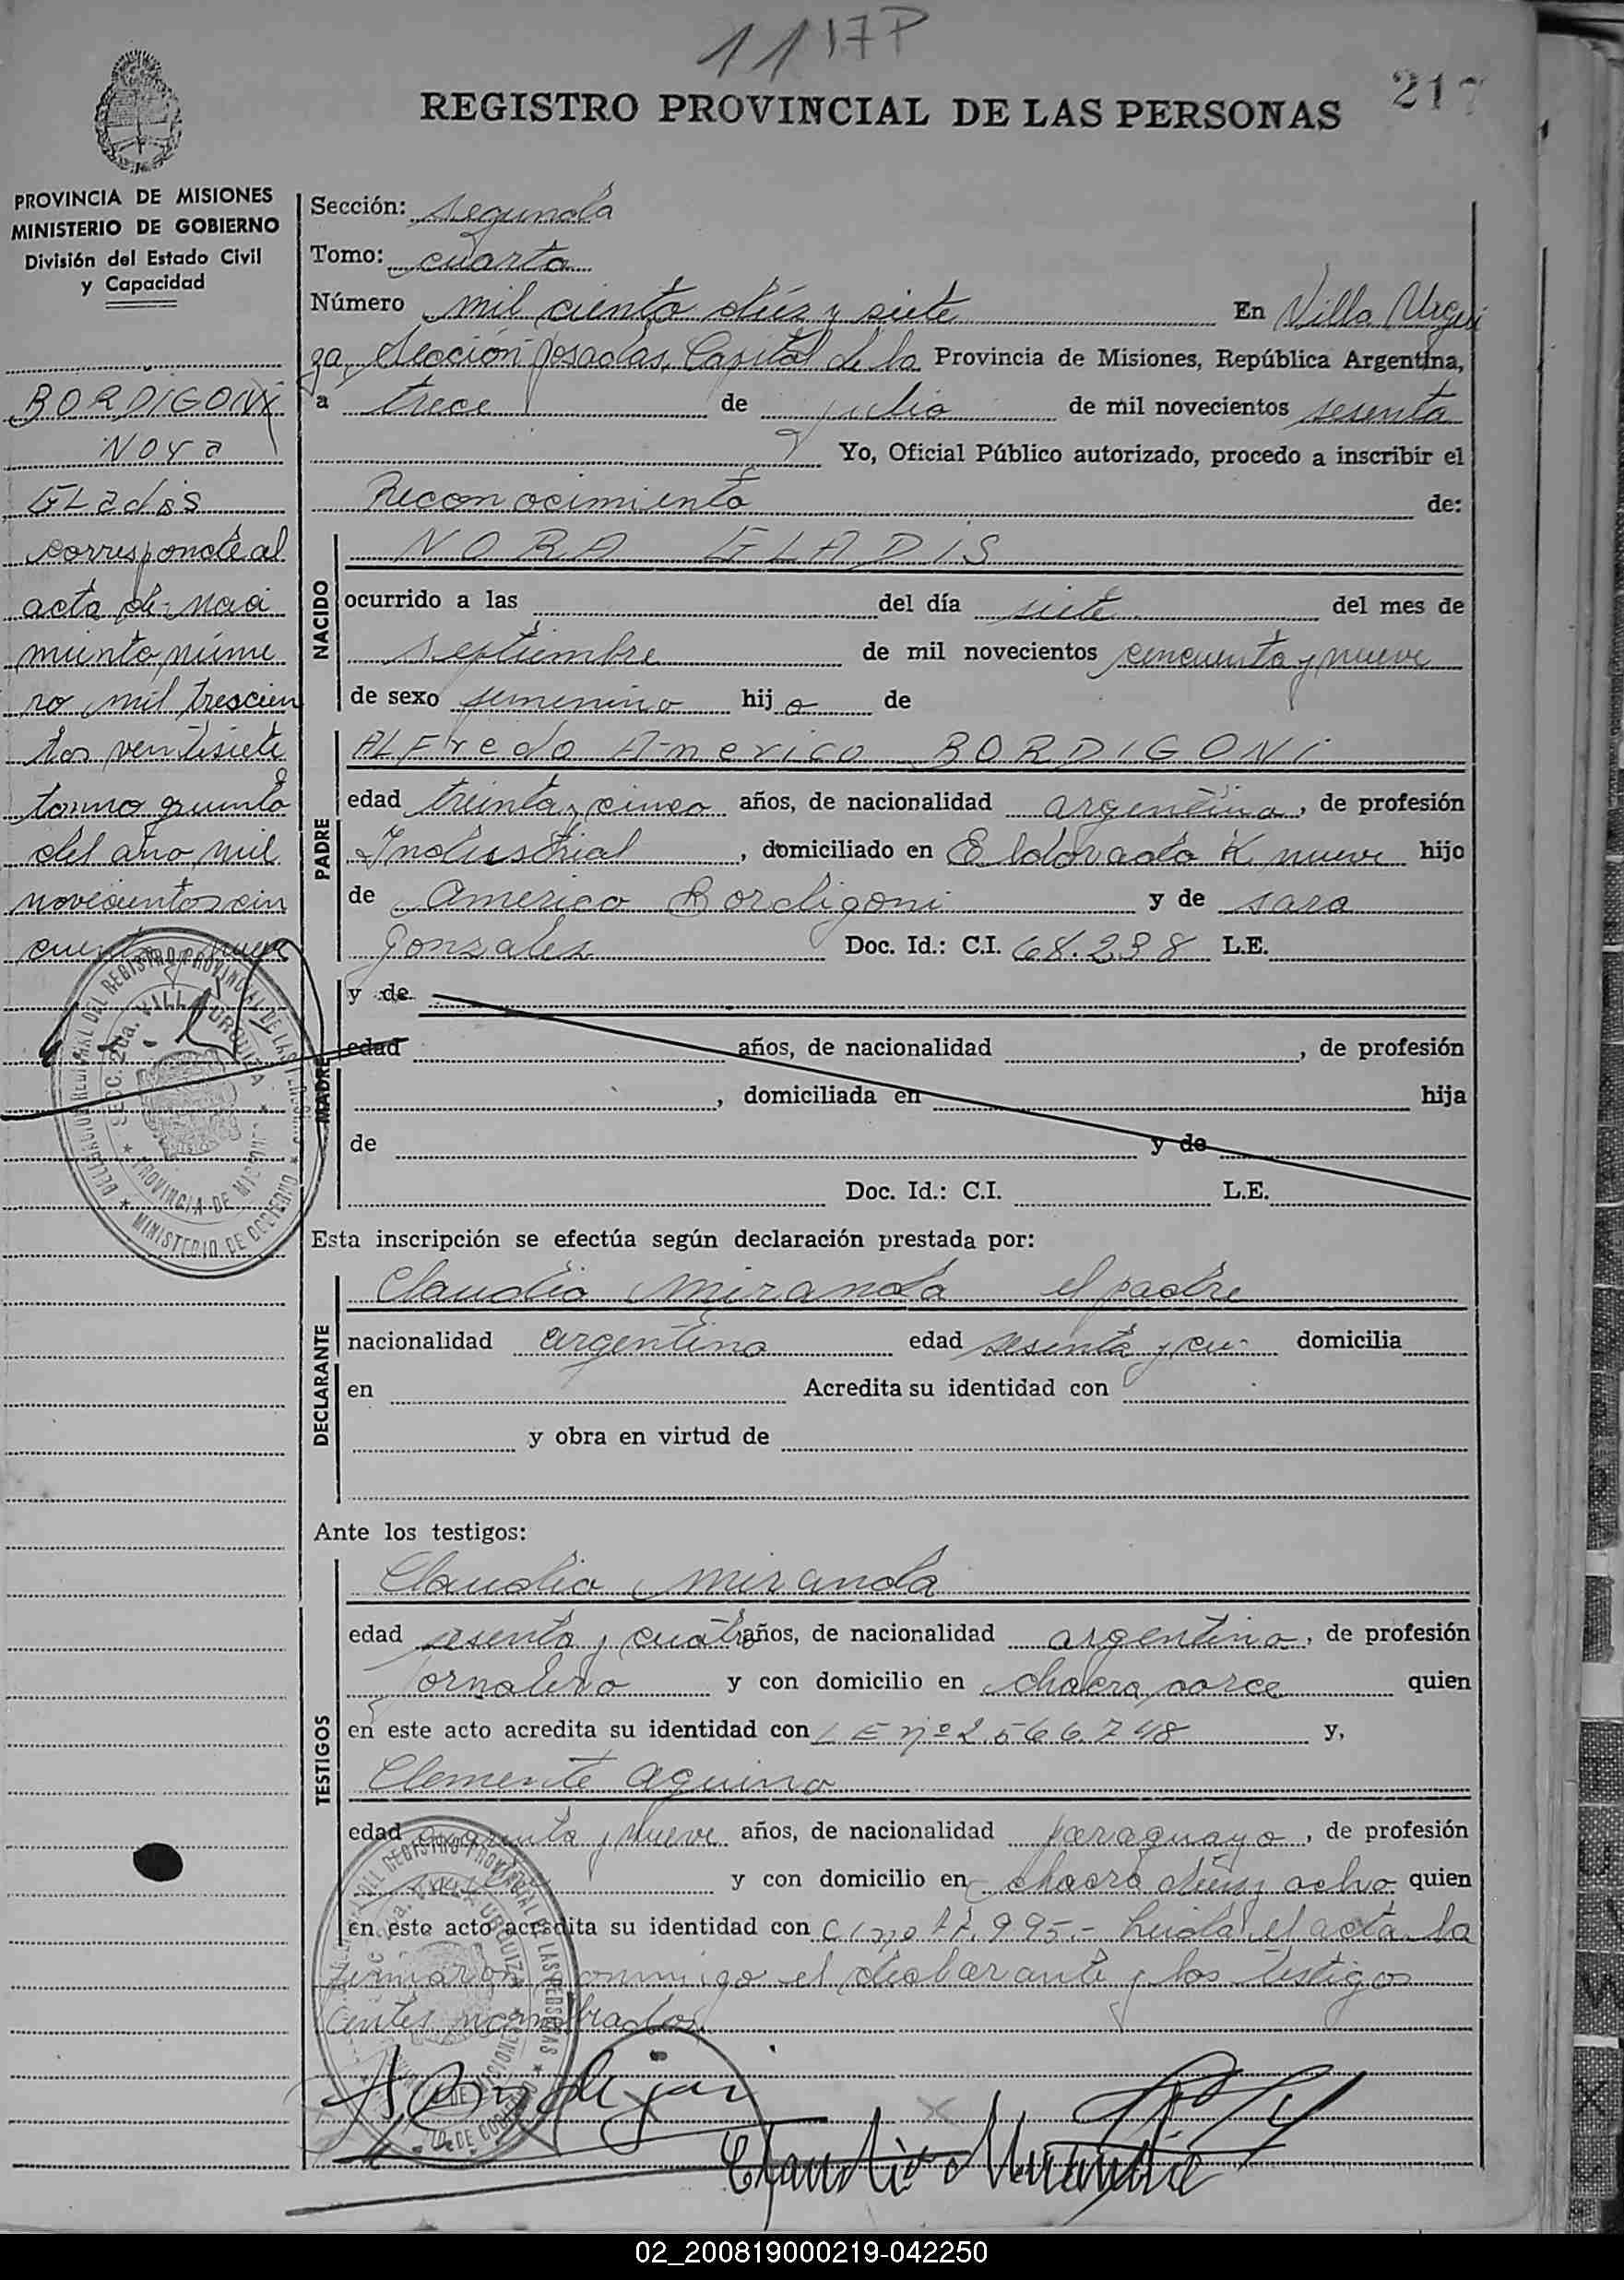 1117P
217
REGISTRO PROVINCIAL DE LAS PERSONAS
PROVINCIA DE MISIONES
MINISTERIO DE GOBIERNO
División del Estado Civil
y Capacidad
BORDIGONI
NORA
GLadis
corresponde al
acta de naci
miento núme
ro mil trescien
tos ventisiete
tomo quinto
del año mil
novecientos cin
cuenta y nueve
Sección: segunda
Tomo: cuarto
Número mil ciento diéz y siete En Villa Urqui
za, Sección Posadas, Capital de la Provincia de Misiones, República Argentina,
a trece de julio de mil novecientos sesenta
Yo, Oficial Público autorizado, procedo a inscribir el
Reconocimiento de:
NACIDO
NORA GLADIS
ocurrido a las del día siete del mes de
septiembre de mil novecientos cincuenta y nueve
de sexo femenino hija de
PADRE
ALFredo Americo BORDIGONI
edad treinta y cinco años, de nacionalidad argentina, de profesión
Industrial, domiciliado en Eldorado K. nueve hijo
de Americo Bordigoni y de sara
Gonzales Doc. Id.: C.I. 68.238 L.E.
MADRE
y de
edad años, de nacionalidad , de profesión
, domiciliada en hija
de y de
Doc. Id.: C.I. L.E.
Esta inscripción se efectúa según declaración prestada por:
DECLARANTE
Claudio Miranda el padre
nacionalidad argentino edad sesenta y cu- domicilia
en Acredita su identidad con
y obra en virtud de
Ante los testigos:
TESTIGOS
Claudio Miranda
edad sesenta y cuatro años, de nacionalidad argentino, de profesión
Jornalero y con domicilio en chacra quien
en este acto acredita su identidad con LE nº 2.566.748 y,
Clemente Aquino
edad y nueve años, de nacionalidad paraguayo, de profesión
y con domicilio en chacra diéz y ocho quien
en este acto acredita su identidad con CI no 77.995.- Leida el acta la
firmaron conmigo el declarante y los testigos
antes nombrados.
Claudio Miranda
DELEGACION REGIONAL DEL REGISTRO PROVINCIAL DE LAS PERSONAS
SECC. 2da. VILLA URQUIZA
PROVINCIA DE MISIONES
MINISTERIO DE GOBIERNO
02_200819000219-042250